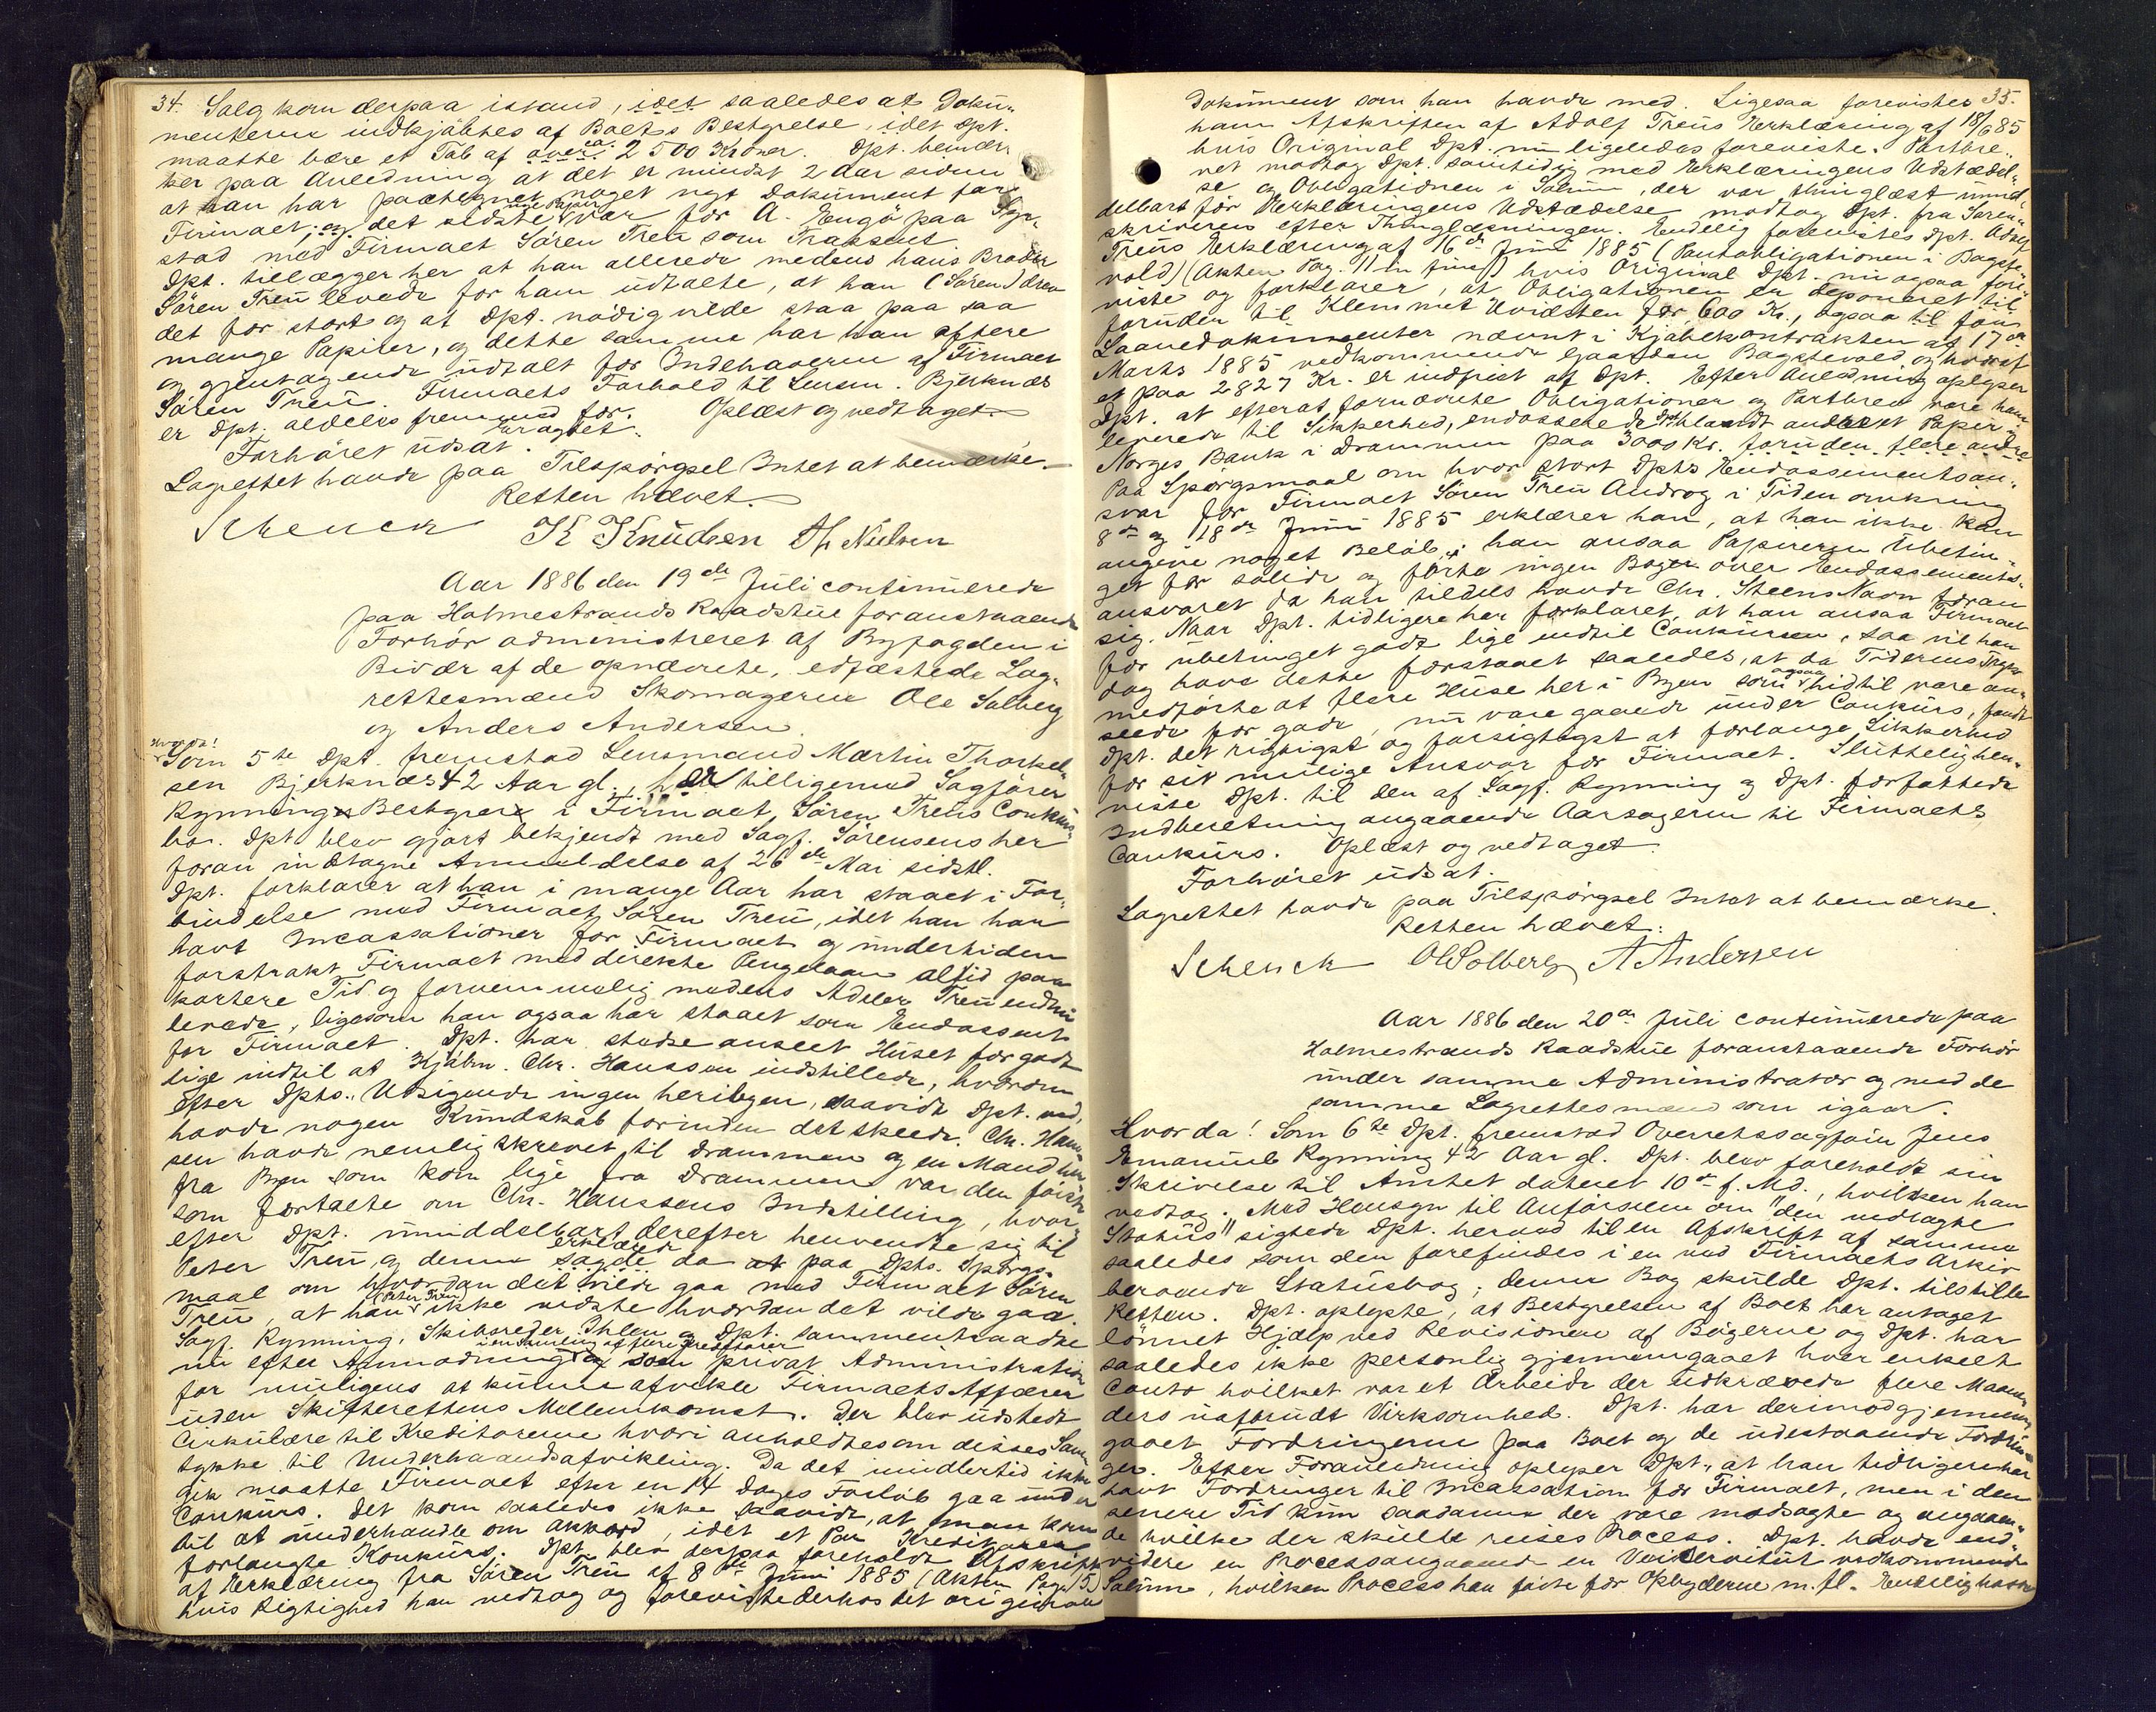 34. Salg kom derpaa istand, idet saaledes at Doku-
menterne indkjøbtes af Boets Bestyrelse, idet Dpt.
maatte bære et Tab af over ca. 2500 Kroner. Dpt. bemær-
ker paa Anledning at det er mindst 2 Aar siden
at han har paategnet noget nyt Dokument for
Firmaet, og det sidste nye Papir var for A. Engø paa Syr-
stad med Firmaet Søren Treu som Trassent.
Dpt. tillægger her at han allerede medens hans Broder
Søren Treu levede for ham udtalte, at han (Søren) drev
det for stort og at Dpt. nødig vilde staa paa saa
mange Papirer, og dette samme har han oftere
og gjentagende udtalt for Indehaverne af Firmaet
Søren Treu. Firmaets Forhold til Lensm. Bjerknæs
er Dpt. aldeles fremmed for. Oplæst og vedtaget.
Fragtet.
Forhøret udsat.
Lagrettet havde paa Tilspørgsel Intet at bemærke.
Retten hævet.
Schenck K Knudsen Th Nielsen
Aar 1886 den 19de Juli continuerede
paa Holmestrands Raadstue foranstaaende
Forhør administreret af Byfogden i
Bivær af de opnævnte, edfæstede Lag-
rettesmænd Skomagerne Ole Solberg
og Anders Andersen.
Hvorda!
Som 5te Dpt. fremstod Lensmand Martin Thorkel-
sen Bjerknæs 42 Aar gl., der tilligemed Sagfører
Rynning er Bestyrer i Firmaet Søren Treus Conkurs-
bo. Dpt. blev gjort bekjendt med Sagf. Sørensens her
foran indtagne Anmeldelse af 26de Mai sidstl.
Dpt. forklarer at han i mange Aar har staaet i For-
bindelse med Firmaet Søren Treu, idet han har
havt Incassationer for Firmaet og undertiden
forstrakt Firmaet med direkte Pengelaan altid paa
kortere Tid og fornemmelig medens Adeler Treu endnu
levede, ligesom han ogsaa har staaet som Endossent
for Firmaet. Dpt. har stedse anseet Huset for godt
lige indtil at Kjøbm. Chr. Hanssen indstillede, hvorom
efter Dpts. Udsigende ingen heribyen, saavidt Dpt. ved,
havde nogen Kundskab forinden det skede. Chr. Hans-
sen havde nemlig skrevet til Drammen og en Mand her
fra Byen som kom lige fra Drammen var den første
som fortalte om Chr. Hanssens Indstilling, hvor-
efter Dpt. umiddelbart derefter henvendte sig til
Peter Treu og denne sagde erklærede da at paa Dpts. Spørgs-
maal om hvordan det vilde gaa med Firmaet Søren
Treu, at han (Peter Treu) ikke vidste hvordan det vilde gaa.
Sagf. Rynning, Skibsreder Ihlen og Dpt. sammentraadte
nu efter Anmodning i en Samling af flere Kreditorer og som privat Administration
for muligens at kunne afvikle Firmaets Affærer
uden Skifterettens Mellemkomst. Der blev udstedt
Cirkulære til Kreditorerne hvori anholdtes om disses Sam-
tykke til Underhaandsafvikling. Da det imidlertid ikke
gik maatte Firmaet efter en 14 Dages Forløb gaa under
Conkurs. Det kom saaledes ikke saavidt, at man kom
til at underhandle om Akkord, idet et Par Kreditorer
forlangte Konkurs. Dpt. blev derpaa foreholdt Afskrift
af Erklæring fra Søren Treu af 8de Juni 1885 (Akten Pag. 15)
hvis Rigtighed han vedtog og foreviste derhos det originale
35.
Dokument som han havde med. Ligesaa forevistes
ham Afskriften af Adolf Treus Erklæring af 18/6 85
hvis Original Dpt. nu ligeledes foreviste. Partbre-
vet modtog Dpt. samtidig med Erklæringens Udstædel-
se og Obligationen i Solum, der var thinglæst umid-
delbart før Erklæringens Udstædelse modtog Dpt. fra Soren-
skriveren efter Thinglæsningen. Endelig forevistes Dpt. Adolf
Treus Erklæring af 16de Juni 1885 (Pantobligationen i Bagste-
vold) (Akten Pag. 11 in fine) hvis Original Dpt. nu ogsaa fore-
viste og forklarer, at Obligationen er deponeret til
foruden til Klemmet Hvidsten for 600 Kr., ogsaa til for
Laanedokumenter nævnt i Kjøbekontrakten af 17de
Marts 1885 vedkommende Gaarden Bagstevold og hvoraf
et paa 2827 Kr. er indfriet af Dpt. Efter Anledning oplyser
Dpt. at efterat fornævnte Obligationer og Partbrev vare ham
leverede til Sikkerhed, endosserede Dpt. blandt andet et Papir i
Norges Bank i Drammen paa 3000 Kr. foruden flere andre
Paa Spørgsmaal om hvor stort Dpts Endossementsan-
svar for Firmaet Søren Treu Androg i Tiden omkring
8de og 18de Juni 1885 erklærer han, at han ikke kan
angive noget Beløb; han ansaa Papirerne Ubetin-
get for solide og førte ingen Bøger over Endossements-
ansvaret da han tildels havde Chr. Steens Navn foran
sig. Naar Dpt. tidligere har forklaret, at han ansaa Firmaet
for ubetinget godt lige indtil Conkursen, saa vil han
dog have dette forstaaet saaledes, at da Tidernes Tryk
medførte at flere Huse her i Byen som ogsaa hidtil vare an-
seede for gode, nu vare gaaede under Conkurs, fandt
Dpt. det rigtigst og forsigtigst at forlange Sikkerhed
for sit mulige Ansvar for Firmaet. Sluttelig hen-
viste Dpt. til den af Sagf. Rynning og Dpt. forfattede
Indberetning angaaende Aarsagerne til Firmaets
Conkurs. Oplæst og vedtaget.
Forhøret udsat.
Lagrettet havde paa Tilspørgsel Intet at bemærke.
Retten hævet.
Schenck OlSolberg AAndersen
Aar 1886 den 20de Juli continuerede paa
Holmestrands Raadstue foranstaaende Forhør
under samme Administrator og med de
samme Lagrettesmænd som igaar.
Hvorda! Som 6te Dpt. fremstod Overretssagfører Jens
Emanuel Rynning 42 Aar gl. Dpt. blev foreholdt sin
Skrivelse til Amtet dateret 10de f. Md., hvilken han
vedtog. Med Hensyn til Anførslen om "den vedlagte
Status" sigtede Dpt. herved til en Afskrift af samme
saaledes som den forefindes i en ved Firmaets Arkiv
beroende Statusbog; denne Bog skulde Dpt. tilstille
Retten. Dpt. oplyste, at Bestyrelsen af Boet har antaget
lønnet Hjælp ved Revisionen af Bøgerne og Dpt. har
saaledes ikke personlig gjennemgaaet hver enkelt
Conto hvilket var et Arbeide der udkrævede flere Maane-
ders uafbrudt Virksomhed. Dpt. har derimod gjennem-
gaaet Fordringerne paa Boet og de udestaaende Fordrin-
ger. Efter Foranledning oplyser Dpt., at han tidligere har
havt Fordringer til Incassation for Firmaet, men i den
senere Tid kun saadanne der vare modsagte og angaaen-
de hvilke der skulde reises Process. Dpt. havde end-
videre en Process angaaende en Veiservitut vedkommende
Solum, hvilken Process han førte for Opbyderne m. fl. Endelig havde